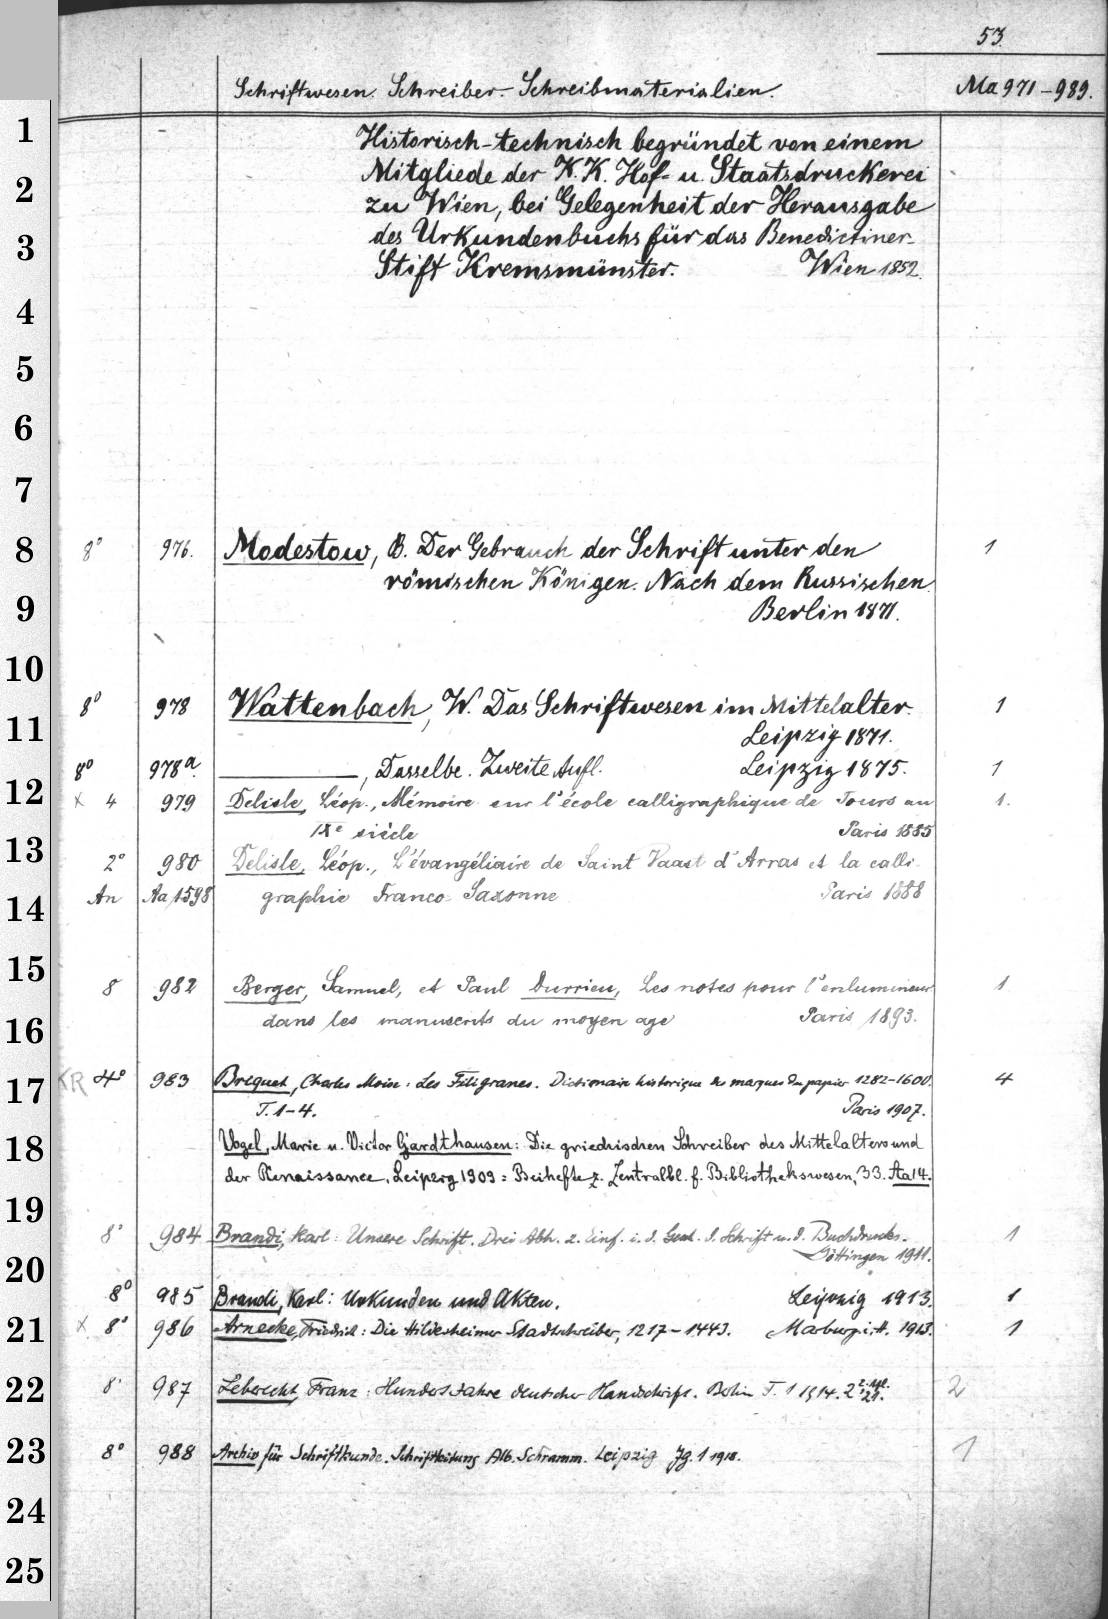 53.
Schriftwesen. Schreiber. Schreibmaterialien. Ma 971-989.
1
Historisch-technisch begründet von einem
2
Mitgliede der K. K. Hof- u. Staatsdruckerei
zu Wien, bei Gelegenheit der Herausgabe
3
des Urkundenbuchs für das Benedictiner-
Stift Kremsmünster. Wien 1852.
4
5
6
7
8
8° 976. Modestow, B. Der Gebrauch der Schrift unter den 1
römischen Königen. Nach dem Russischen.
9
Berlin 1871.
10
8° 978 Wattenbach, W. Das Schriftwesen im Mittelalter. 1
11
Leipzig 1871.
8° 978a. ———, Dasselbe. Zweite Aufl. Leipzig 1875. 1
12
x 4 979 Delisle, Léop., Mémoire sur l'école calligraphique de Tours au 1.
IXe siècle Paris 1885
13
2° 980 Delisle, Léop., L'évangéliaire de Saint Vaast d'Arras et la calli-
An Aa 1598 graphie Franco-Saxonne Paris 1888
14
15
8 982 Berger, Samuel, et Paul Durrieu, Les notes pour l'enlumineur 1
16
dans les manuscrits du moyen age Paris 1893.
17
KR 4° 983 Briquet, Charles Moïse: Les Filigranes. Dictionnaire historique des marques du papier 1282-1600. 4
T. 1-4. Paris 1907.
18
Vogel, Marie u. Victor Gardthausen: Die griechischen Schreiber des Mittelalters und
der Renaissance. Leipzig 1909 = Beihefte z. Zentralbl. f. Bibliothekswesen, 33. Aa 14.
19
8° 984 Brandi, Karl: Unsere Schrift. Drei Abh. z. Einf. i. d. Gesch. d. Schrift u. d. Buchdrucks. 1
Göttingen 1911.
20
8° 985 Brandi, Karl: Urkunden und Akten. Leipzig 1913. 1
21
x 8° 986 Arnecke, Friedrich: Die Hildesheimer Stadtschreiber, 1217-1443. Marburg i. H. 1913. 1
22
8° 987 Leberecht, Franz: Hundert Jahre deutscher Handschrift. Berlin T. 1 1914. 2 2. Afl. '21. 2
23
8° 988 Archiv für Schriftkunde. Schriftleitung Alb. Schramm. Leipzig Jg. 1 1918. 1
24
25